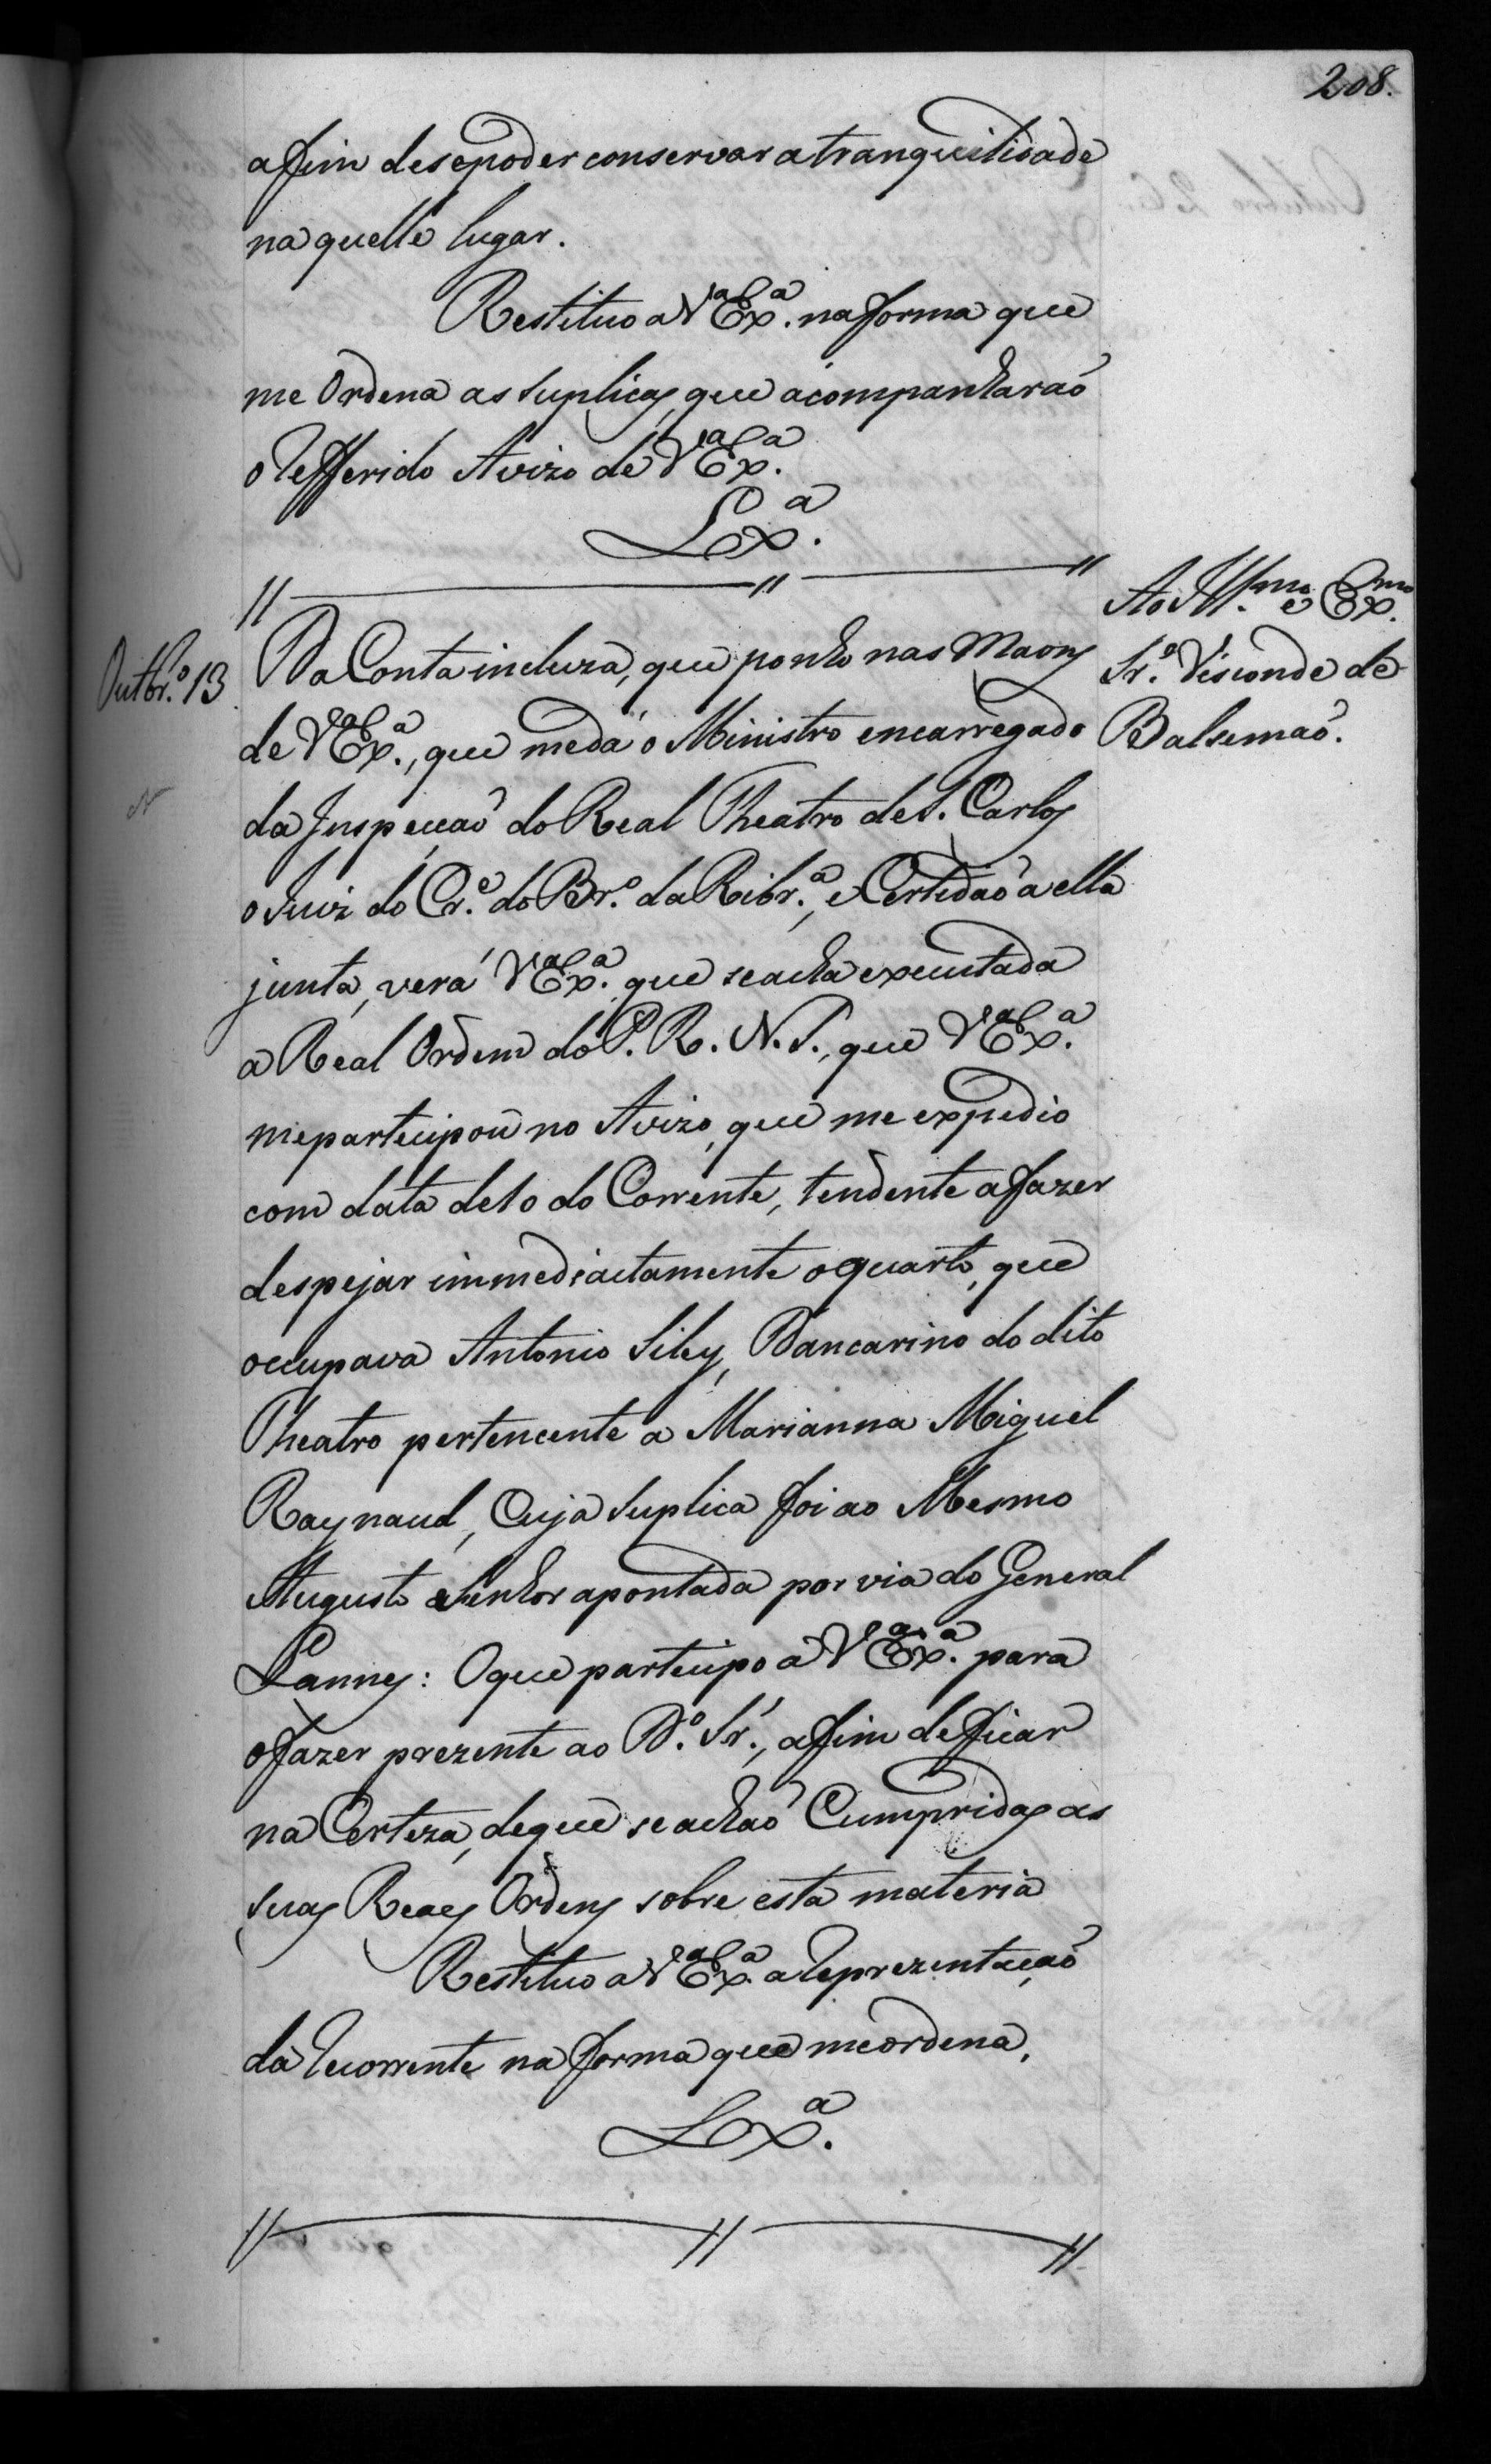 208.
affim de se poder conservar a tranquilidade
naquelle lugar.
Restituo a V.ª Ex.ª na forma que
me Ordena as Suplicas, que acompanharaõ
o refferido Avizo de V.ª Ex.ª
Lx.ª
Outbr.º 13
Ao Ill.mo e Ex.mo
Sr.º Visconde de
Balsemaõ.
Da Conta incluza, que ponho nas Maons
de V.ª Ex.ª, que me dá o Ministro encarregado
da Inspecçaõ do Real Theatro de S. Carlos
o Juiz do Cr.e do Br.º da Ribr.ª, e Certidaõ a ella
junta, verá V.ª Ex.ª que se acha executada
a Real Ordem do P. R. N. S., que V.ª Ex.ª
me participou no Avizo, que me expedio
com data de 10 do Corrente, tendente a fazer
despejar immediactamente o quarto, que
occupava Antonio Siley, Dancarino do dito
Theatro pertencente a Marianna Miguel
Raynaud, Cuja Suplica foi ao Mesmo
Augusto Senhor apontada por via do General
Lannes: O que participo a V.ª Ex.ª para
o fazer prezente ao D.º Sr., affim de ficar
na Certeza, de que se achaõ Cumpridas as
suas Reaes Ordens sobre esta materia
Restituo a V.ª Ex.ª a reprezentaçaõ
da recorrente na forma que me ordena.
Lx.ª